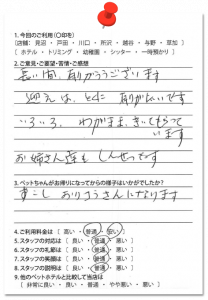 1. 今回のご利用 (〇印を)
[店舗: 見沼 ・ 戸田 ・ 川口 ・ 所沢 ・ 越谷 ・ 与野 ・ 草加 ]
[ ホテル ・ トリミング ・ 幼稚園 ・ シッター ・ 一時預かり ]
2.ご意見・ご要望・苦情・ご感想
長い間、ありがとうございます
迎えは、とくに ありがたいです
いろいろ、わがまま、きいてもらって
います
お姉さん達も しんせつです
3. ペットちゃんがお帰りになってからの様子はいかがでしたか？
すこし おりこうさんになります
4. ご利用料金は [ 高い ・ 普通 ・ 安い ]
5. スタッフの対応は [ 良い ・ 普通 ・ 悪い ]
6. スタッフの礼節は [ 良い ・ 普通 ・ 悪い ]
7. スタッフの態度は [ 良い ・ 普通 ・ 悪い ]
8. スタッフの説明は [ 良い ・ 普通 ・ 悪い ]
9. 他のペットホテルと比較して当店は
[ 非常に良い ・ 良い ・ 普通 ・ やや悪い ・ 悪い ]